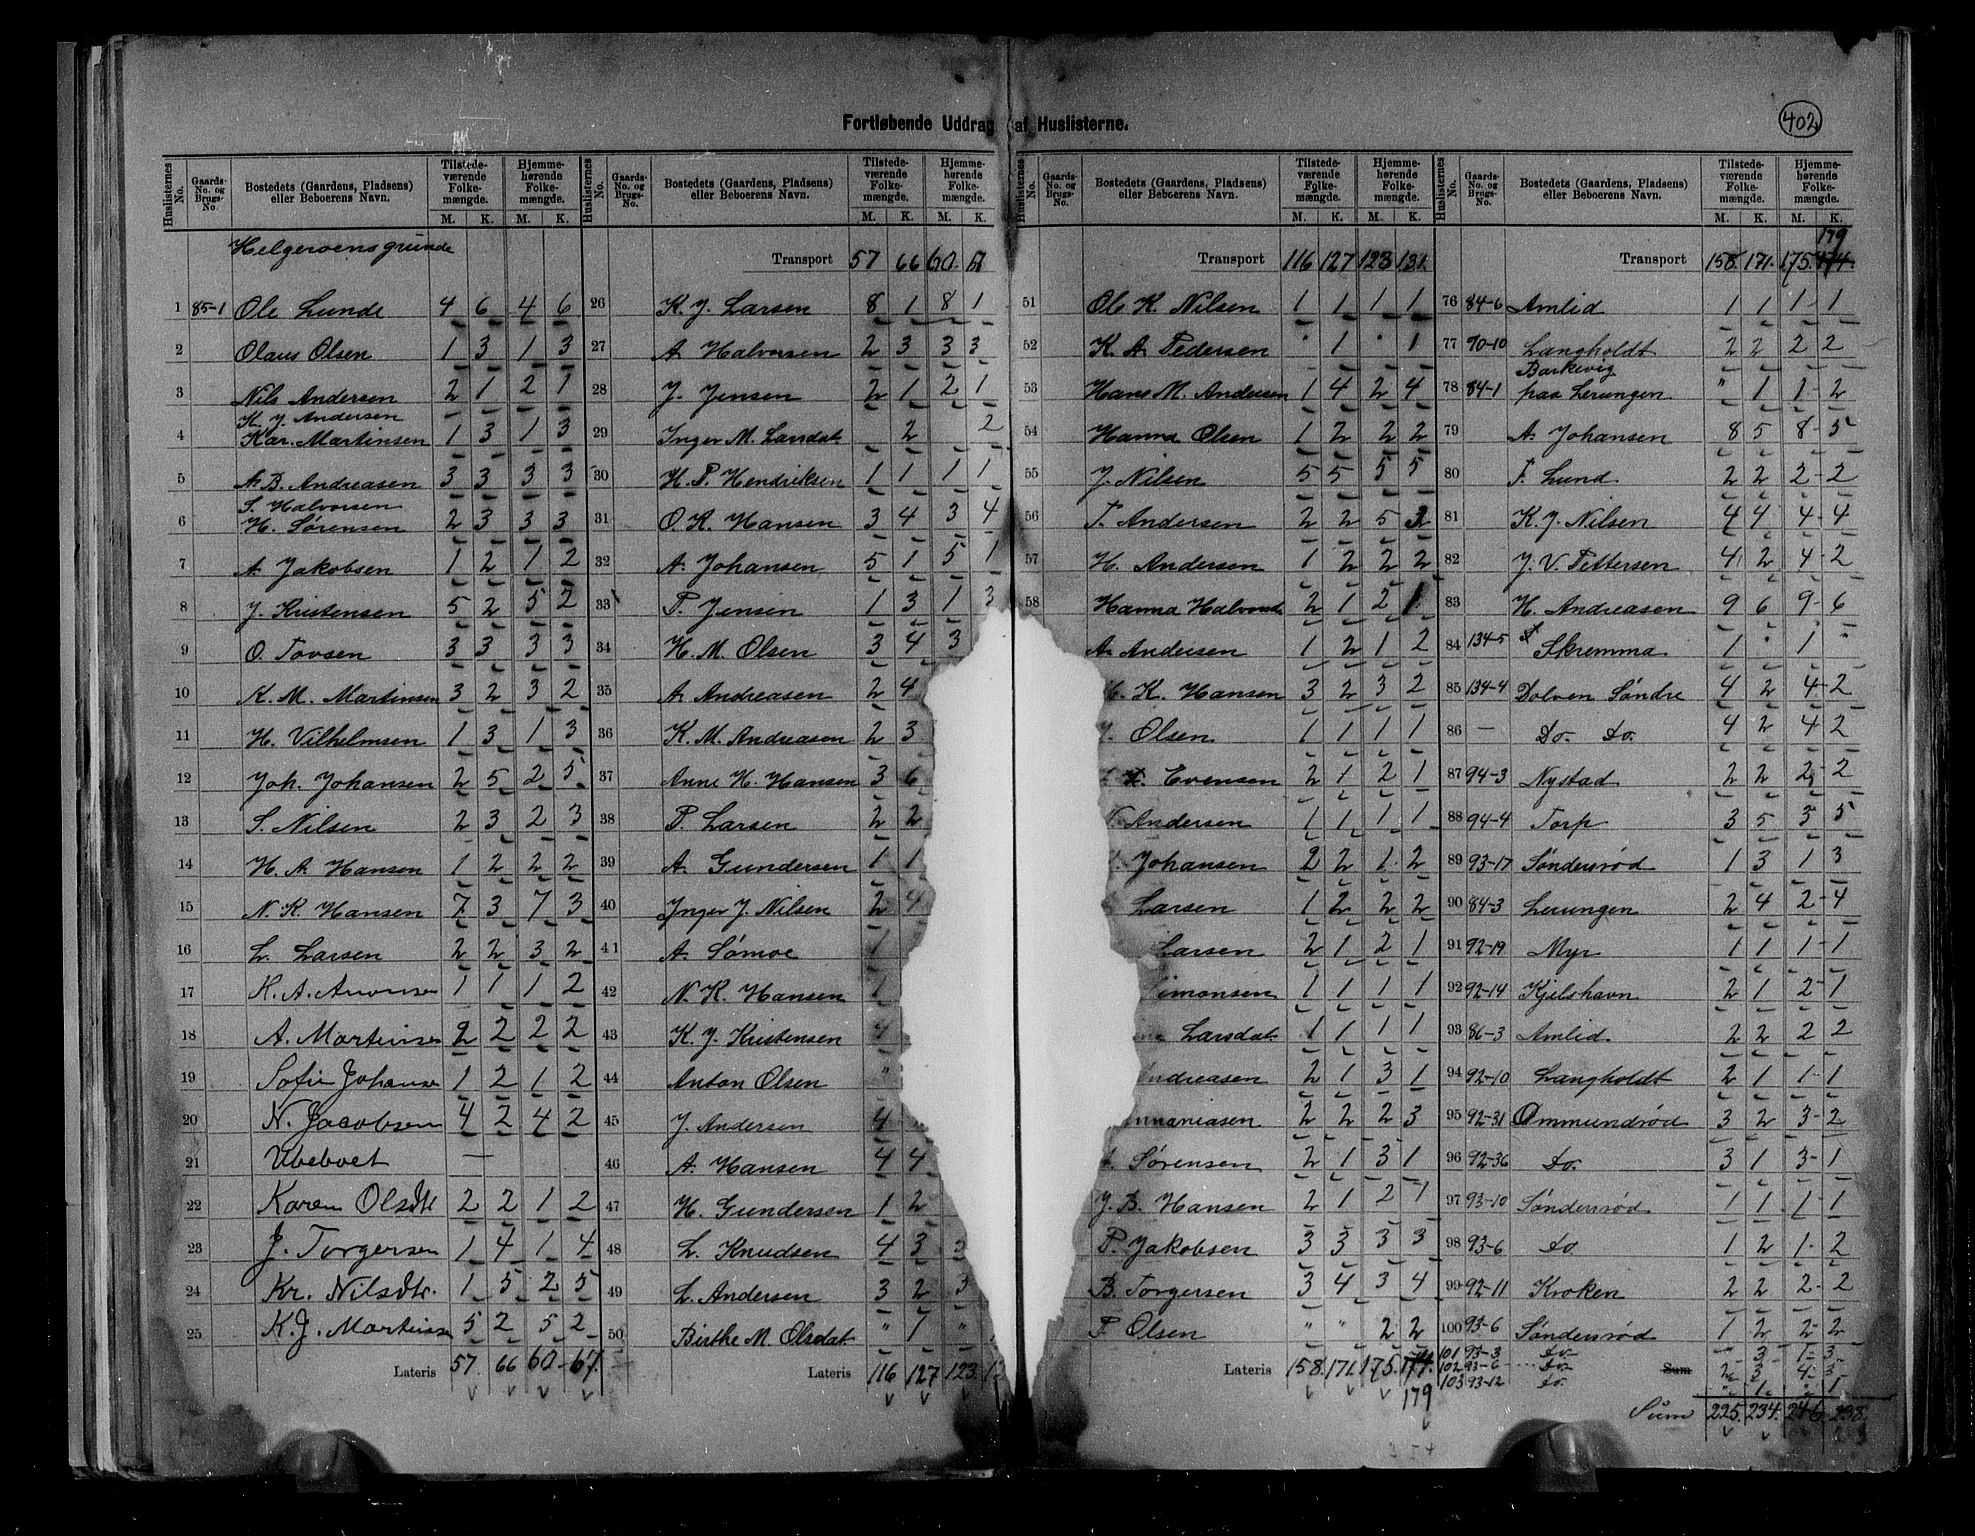 402
Fortløbende Uddrag af Huslisterne.
Huslisternes No. | Gaards-No. og Brugs-No. | Bostedets (Gaardens, Pladsens) eller Beboerens Navn. | Tilstedeværende Folkemængde. M. K. | Hjemmehørende Folkemængde. M. K.
Helgeroens grunde
1 85-1 Ole Lunde 4 6 4 6
2 Olaus Olsen 1 3 1 3
3 Nils Andersen 2 1 2 1
K. J. Andersen
4 Kar. Martinsen 1 3 1 3
5 A. B. Andreasen 3 3 3 3
S. Halvorsen
6 H. Sørensen 2 3 3 3
7 A. Jakobsen 1 2 1 2
8 J. Kristensen 5 2 5 2
9 O. Tovsen 3 3 3 3
10 K. M. Martinsen 3 2 3 2
11 H. Vilhelmsen 1 3 1 3
12 Joh. Johansen 2 5 2 5
13 S. Nilsen 2 3 2 3
14 H. A. Hansen 1 2 2 2
15 N. K. Hansen 7 3 7 3
16 L. Larsen 2 2 3 2
17 H. A. 1 1 1 2
18 A. Martinse 2 2 2 2
19 Sofie Johanse 1 2 1 2
20 N. Jacobsen 4 2 4 2
21 Ubeboet —
22 Karen Olsdtr 2 2 1 2
23 J. Torgersen 1 4 1 4
24 Kr. Nilsdtr. 1 5 2 5
25 K. J. Martins 5 2 5 2
Lateris 57 66 60 67
Transport 57 66 60 67
26 K. J. Larsen 8 1 8 1
27 A. Halvorsen 2 3 3 3
28 J. Jensen 2 1 2 1
29 Inger M. Larsdat. 2 2
30 H. P. Hendriksen 1 1 1 1
31 O. K. Hansen 3 4 3 4
32 A. Johansen 5 1 5 1
33 P. Jensen 1 3 1 3
34 H. M. Olsen 3 4 3
35 A. Andreasen 2 4
36 K. M. Andreasen 2 3
37 Anne H. Hansen 3 6
38 P. Larsen 2 2
39 A. Gundersen 1 1
40 Inger J. Nilsen 2 4
41 A. Sømoe 1
42 N. K. Hansen 1
43 K. J. Kristensen 4
44 Anton Olsen "
45 J. Andersen 4
46 A. Hansen 4 4
47 H. Gundersen 1 2
48 L. Knudsen 4 3
49 L. Andersen 3 2 3
50 Birthe M. Olsdat. " 1 "
Lateris 116 127 123
Transport 116 127 123 131.
51 Ole K. Nilsen 1 1 1 1
52 K. A. Pedersen · 1 · 1
53 Hans M. Andersen 1 4 2 4
54 Hanna Olsen 1 2 2 2
55 J. Nilsen 5 5 5 5
56 T. Andersen 2 2 5 2
57 H. Andersen 1 2 2 2
58 Hanna Halvorsd 2 1 2 1
A. Andersen 1 2 1 2
K. Hansen 3 2 3 2
Olsen 1 1 1 1
Evensen 2 1 2 1
Andersen 1 1 1 1
Johansen 2 2 1 2
Larsen 1 2 2 2
Larsen 2 1 2 1
Simonsen 1 1 1 1
Larsdat. 1 1 1 1
Andreasen 2 1 3 1
2 2 2 3
Sørensen 2 1 3 1
J. B. Hansen 2 1 2 1
P. Jakobsen 3 3 3 3
B. Torgersen 3 4 3 4
P. Olsen " " 2 2
Lateris 158. 171. 175. 174.
179
179
Transport 158. 171. 175. 174.
76 84-6 Amlid 1 1 1 1
77 90-10 Langholdt 2 2 2 2
Barkevig
78 84-1 paa Lerungen " 1 1 2
79 A. Johansen 8 5 8 5
80 T. Lund 2 2 2 2
81 K. J. Nilsen 4 4 4 4
82 J. V. Pettersen 4 2 4 2
83 H. Andreasen 9 6 9 6
84 134-5 Skremma 1 · 1 "
85 134-4 Dolven Søndre 4 2 4 2
86 — Do. Do. 4 2 4 2
87 94-3 Nystad 2 2 2 2
88 94-4 Torp 3 5 3 5
89 93-17 Søndersrød 1 3 1 3
90 84-3 Lerungen 2 4 2 4
91 92-19 Myr 1 1 1 1
92 92-14 Kjelshavn 2 1 2 1
93 86-3 Amlid 2 2 2 2
94 92-10 Langholdt 2 1 1 1
95 92-31 Ommundrød 3 2 3 2
96 92-36 Do. 3 1 3 1
97 93-10 Søndersrød 1 1 1 1
98 93-6 Do 1 2 1 2
99 92-11 Kroken 2 2 2 2
100 93-6 Søndersrød 1 2 2 2
101 93-3 Do. 3 1 3
102 93-6 Do. Sum 2 3 4 3
103 93-12 Do. " 1 " 1
Sum 225. 234. 246. 238.